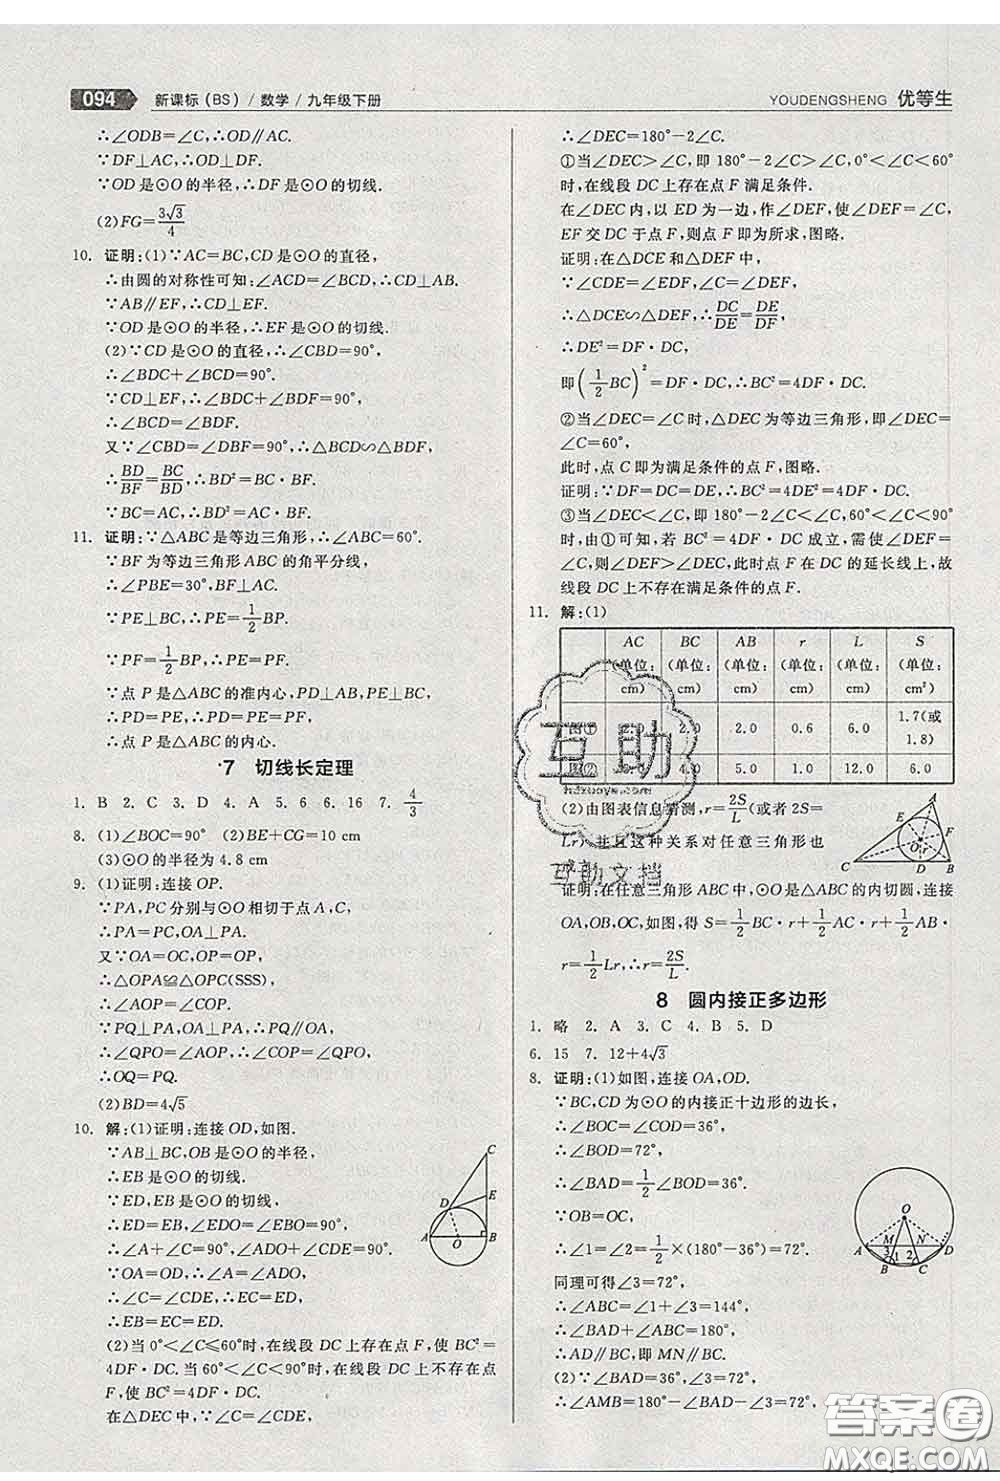 094 新课标(BS)/数学/九年级下册
YOUDENGSHENG 优等生
∴∠ODB=∠C,∴OD∥AC.
∵DF⊥AC,∴OD⊥DF.
∵OD是⊙O的半径,∴DF是⊙O的切线.
(2)FG=3√3/4
10. 证明:(1)∵AC=BC,CD是⊙O的直径,
∴由圆的对称性可知:∠ACD=∠BCD,CD⊥AB.
∵AB∥EF,∴CD⊥EF.
∵OD是⊙O的半径,∴EF是⊙O的切线.
(2)∵CD是⊙O的直径,∴∠CBD=90°,
∴∠BDC+∠BCD=90°.
∵CD⊥EF,∴∠BDC+∠BDF=90°.
∴∠BCD=∠BDF.
又∵∠CBD=∠DBF=90°,∴△BCD∽△BDF.
∴BD/BF=BC/BD,∴BD²=BC·BF.
∵BC=AC,∴BD²=AC·BF.
11. 证明:∵△ABC是等边三角形,∴∠ABC=60°.
∵BF为等边三角形ABC的角平分线,
∴∠PBE=30°,BF⊥AC.
∵PE⊥BC,∴PE=1/2BP.
∵PF=1/2BP,∴PE=PF.
∵点P是△ABC的准内心,PD⊥AB,PE⊥BC,
∴PD=PE,∴PD=PE=PF.
∴点P是△ABC的内心.
*7 切线长定理
1. B 2. C 3. D 4. A 5. 6 6. 16 7. 4/3
8. (1)∠BOC=90° (2)BE+CG=10 cm
(3)⊙O的半径为4.8 cm
9. (1)证明:连接OP.
∵PA,PC分别与⊙O相切于点A,C,
∴PA=PC,OA⊥PA.
又∵OA=OC,OP=OP,
∴△OPA≌△OPC(SSS),
∴∠AOP=∠COP.
∵PQ⊥PA,OA⊥PA,∴PQ∥OA,
∴∠QPO=∠AOP,∴∠QPO=∠COP,
∴OQ=PQ.
(2)BD=4√5
10. 解:(1)证明:连接OD,如图.
∵AB⊥BC,OB是⊙O的半径,
∴EB是⊙O的切线.
∵ED,EB是⊙O的切线,
∴ED=EB,∠ADO+∠CDE=90°,
∴∠A+∠C=90°=∠ADO+∠CDE
∵OA=OD,∴∠A=∠ADO,
∴∠C=∠CDE,∴ED=EC,
∴EB=EC.
(2)当0°<∠C≤60°时,在线段DC上存在点F,使BC²=
4DF·DC.当60°<∠C<90°时,在线段DC上不存在点
F,使BC²=4DF·DC.
在△DEC中,∵∠C=∠CDE,
∴∠DEC=180°-2∠C.
①当∠DEC>∠C,即180°-2∠C>∠C,0°<∠C<60°
时,在线段DC上存在点F满足条件.
在∠DEC内,以ED为一边,作∠DEF,使∠DEF=∠C,
EF交DC于点F,则点F即为所求,图略.
证明:在△DCE和△DEF中,
∵∠CDE=∠EDF,∠C=∠DEF,
∴△DCE∽△DEF,∴DC/DE=DE/DF,
∴DE²=DF·DC,
即(1/2BC)²=DF·DC,∴BC²=4DF·DC.
②当∠DEC=∠C时,△DEC为等边三角形,即∠DEC=
∠C=60°,
此时,点C即为满足条件的点F,图略.
证明:∵DF=DC=DE,∴BC²=4DE²=4DF·DC.
③当∠DEC<∠C,即180°-2∠C<∠C,60°<∠C<90°
时,由①可知,若BC²=4DF·DC成立,需使∠DEF=
∠C,则∠DEF>∠DEC,此时点F在DC的延长线上,故
线段DC上不存在满足条件的点F.
11. 解:(1)
AC(单位:cm) BC(单位:cm) AB(单位:cm) r(单位:cm) L(单位:cm) S(单位:cm²)
2.0 2.0 0.6 6.0 1.7(或1.8)
4.0 5.0 1.0 12.0 6.0
(2)由图表信息猜测,r=2S/L(或者2S=
Lr),并且这种关系对任意三角形也
证明:在任意三角形ABC中,⊙O是△ABC的内切圆,连接
OA,OB,OC,如图,得S=1/2BC·r+1/2AC·r+1/2AB·
r=1/2Lr,∴r=2S/L.
8 圆内接正多边形
1. 略 2. A 3. C 4. B 5. D
6. 15 7. 12+4√3
8. 证明:(1)如图,连接OA,OD.
∵BC,CD为⊙O的内接正十边形的边长,
∴∠BOC=∠COD=36°,
∴∠BOD=72°,
∴∠BAD=1/2∠BOD=36°.
∵OB=OC,
∴∠1=∠2=1/2×(180°-36°)=72°.
同理可得∠3=72°,
∴∠ABC=∠1+∠3=144°,
∴∠BAD+∠ABC=180°,
∴AD∥BC,即MN∥BC.
(2)∵∠BAD=36°,∠3=72°,
∴∠AMB=180°-∠BAD-∠3=72°,
C
D
E
A
O
B
A
E
F
O r
C
D
B
O
A M N D
3 1 2
B C
互助
hdzuoye.com
互助文挡
答案圈
MXQE.COM